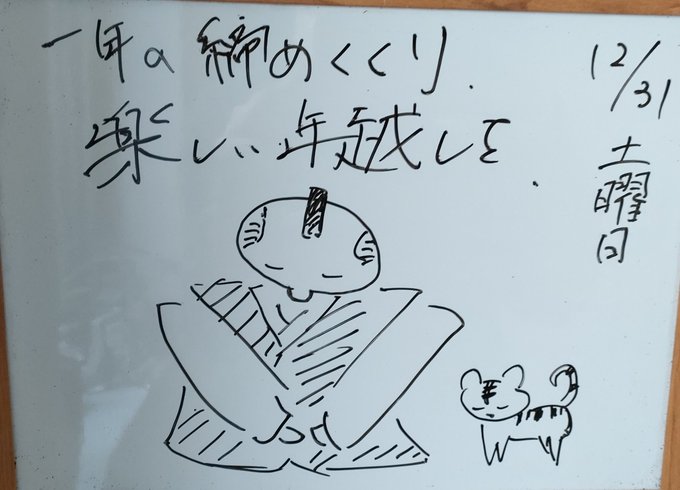 一年の締めくくり.
楽しい年越しを.
12/31
土曜日